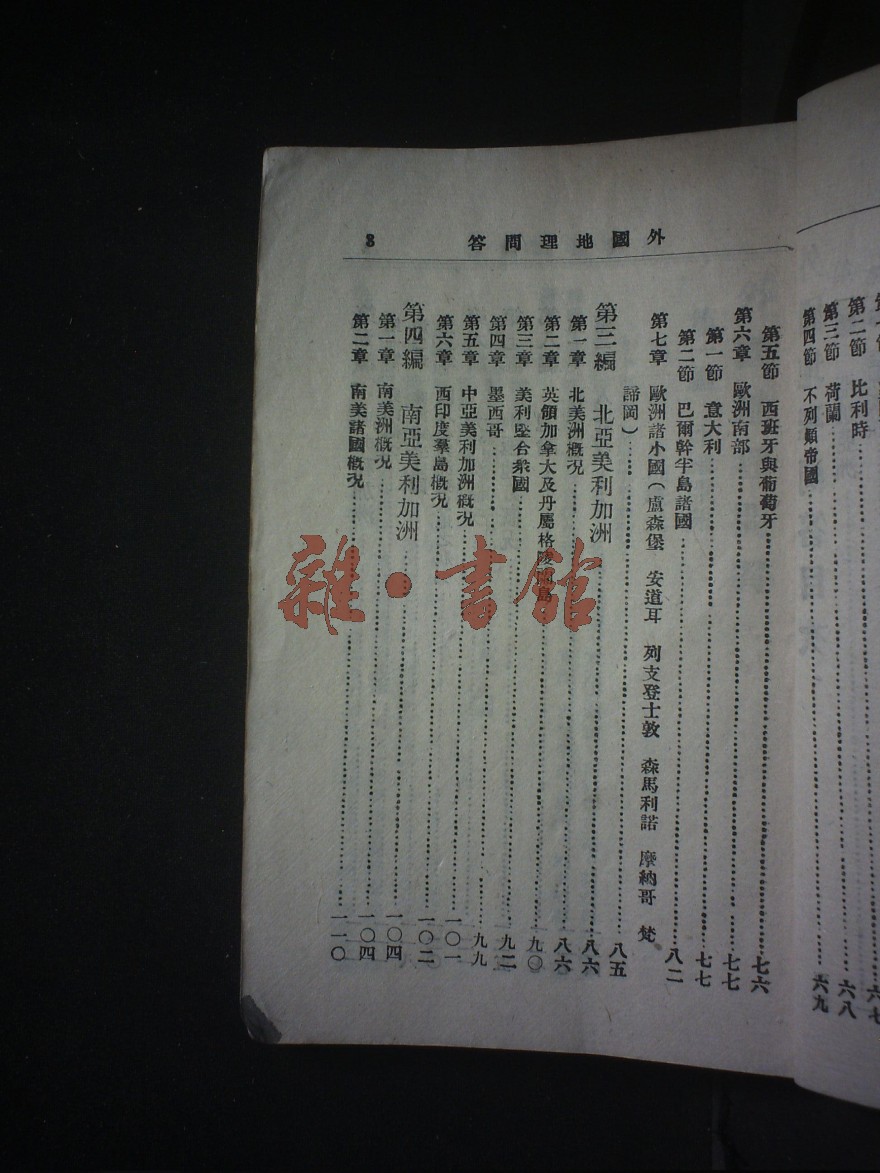 第二節　比利時……六八
第三節　荷蘭……
第四節　不列顛帝國……六九
外國地理問答　8
第五節　西班牙與葡萄牙……七六
第六章　歐洲南部……七七
第一節　意大利……七七
第二節　巴爾幹半島諸國……八二
第七章　歐洲諸小國（盧森堡　安道耳　列支登士敦　森馬利諾　摩納哥　梵
諦岡）……八五
第三編　北亞美利加洲……八六
第一章　北美洲概況……八六
第二章　英領加拿大及丹屬格陵蘭島……九〇
第三章　美利堅合衆國……九二
第四章　墨西哥……九九
第五章　中亞美利加洲概況……一〇一
第六章　西印度羣島概況……一〇二
第四編　南亞美利加洲……一〇四
第一章　南美洲概況……一〇四
第二章　南美諸國概況……一一〇
雜·書館